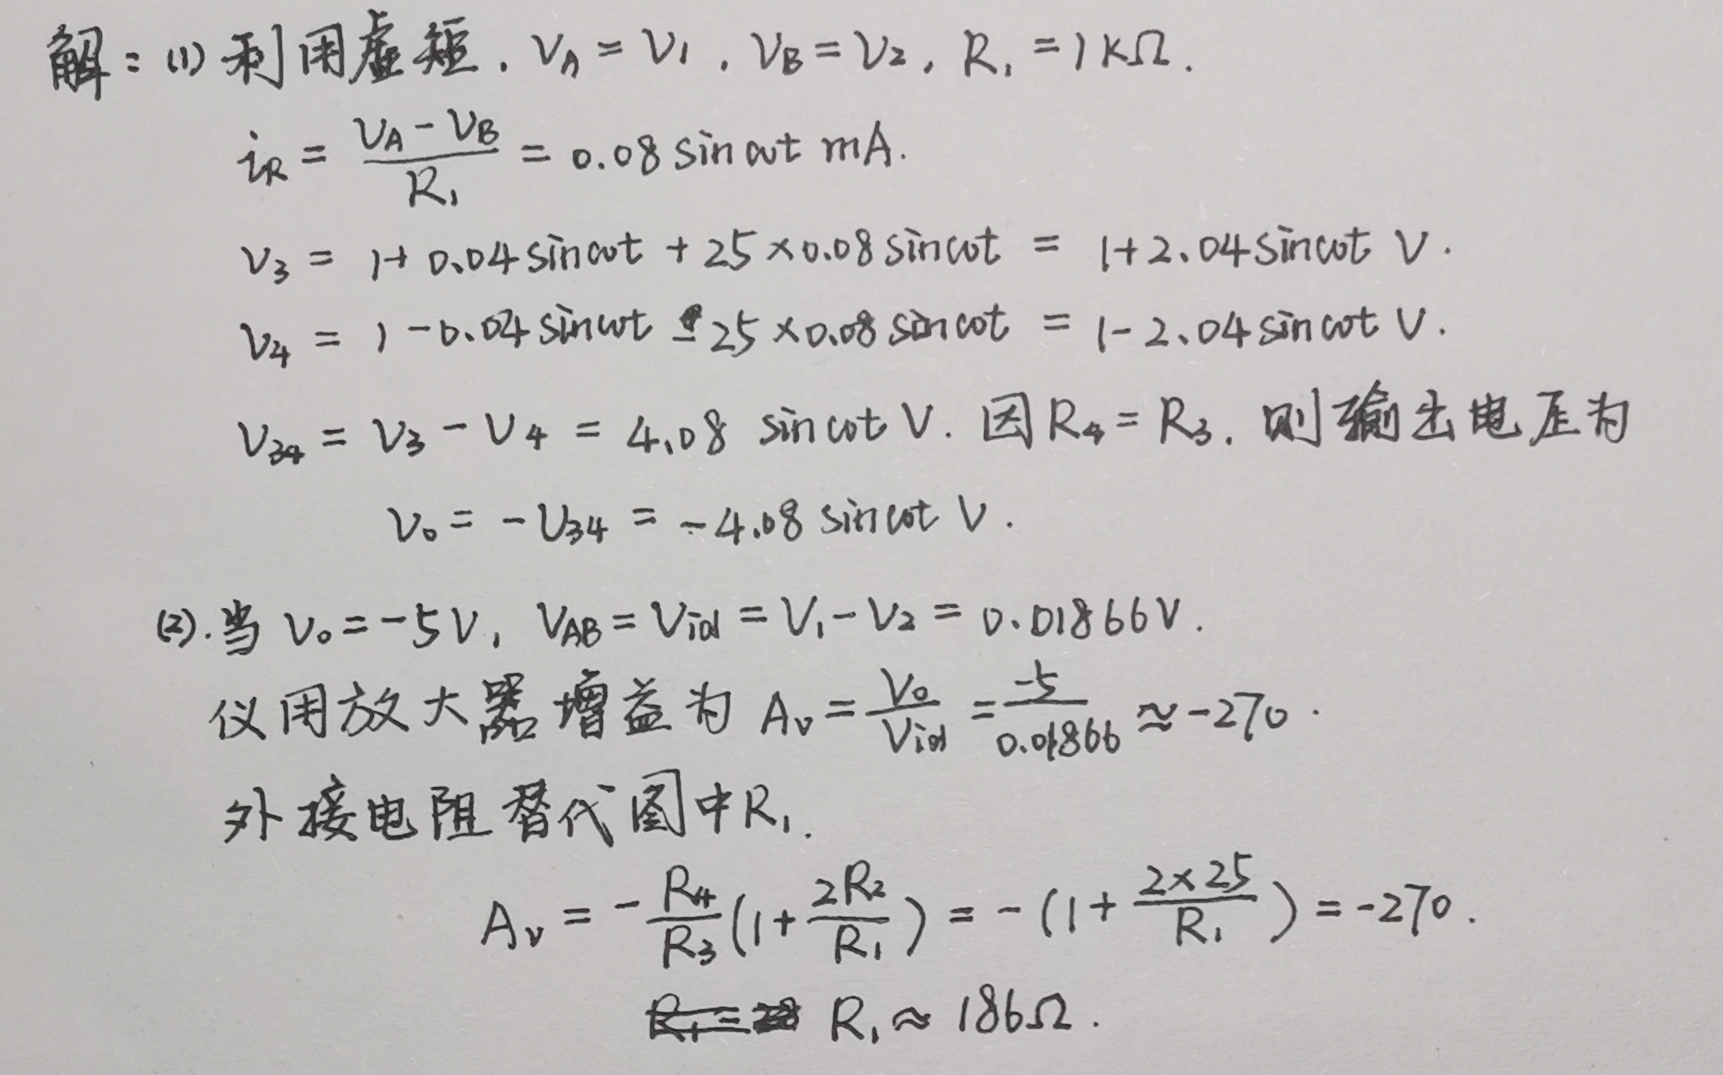 解：(1) 利用虚短. VA = V1 , VB = V2, R1 = 1KΩ.
iR = (VA - VB)/R1 = 0.08 sinωt mA.
V3 = 1+ 0.04 sinωt + 25×0.08 sinωt = 1+2.04 sinωt V.
V4 = 1 -0.04 sinωt - 25×0.08 sinωt = 1-2.04 sinωt V.
V34 = V3 - V4 = 4.08 sinωt V. 因R4 = R3. 则输出电压为
V0 = -V34 = -4.08 sinωt V.
(2).当 V0 = -5V, VAB = Vid = V1 - V2 = 0.01866V.
仪用放大器增益为 Av = V0/Vid = -5/0.01866 ≈ -270.
外接电阻替代图中R1.
Av = - R4/R3 (1+ 2R2/R1) = - (1+ 2×25/R1) = -270.
R1 ≈ 186Ω.